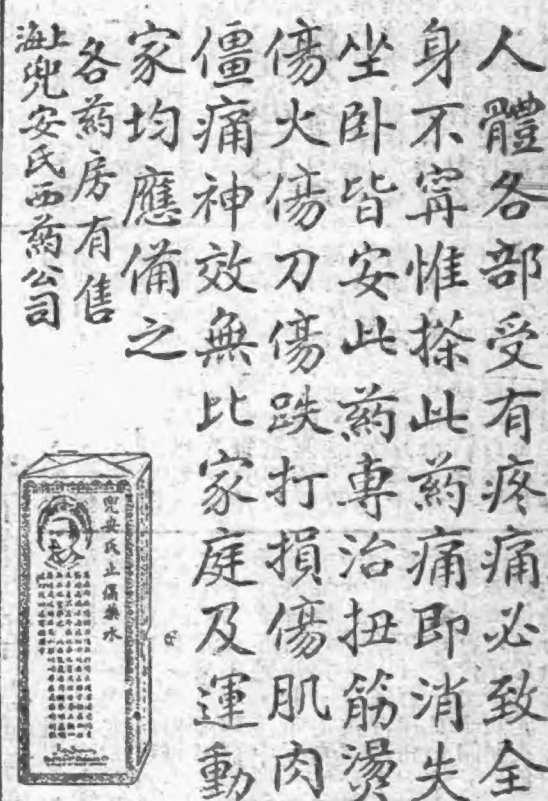 人體各部受有疼痛必致全
身不寧惟搽此葯痛即消失
坐卧皆安此葯専治扭筋燙
傷火傷刀傷跌打損傷肌肉
僵痛神效無比家庭及運動
家均應備之
各葯房有售
上海兜安氏西葯公司
兜安氏止痛藥水